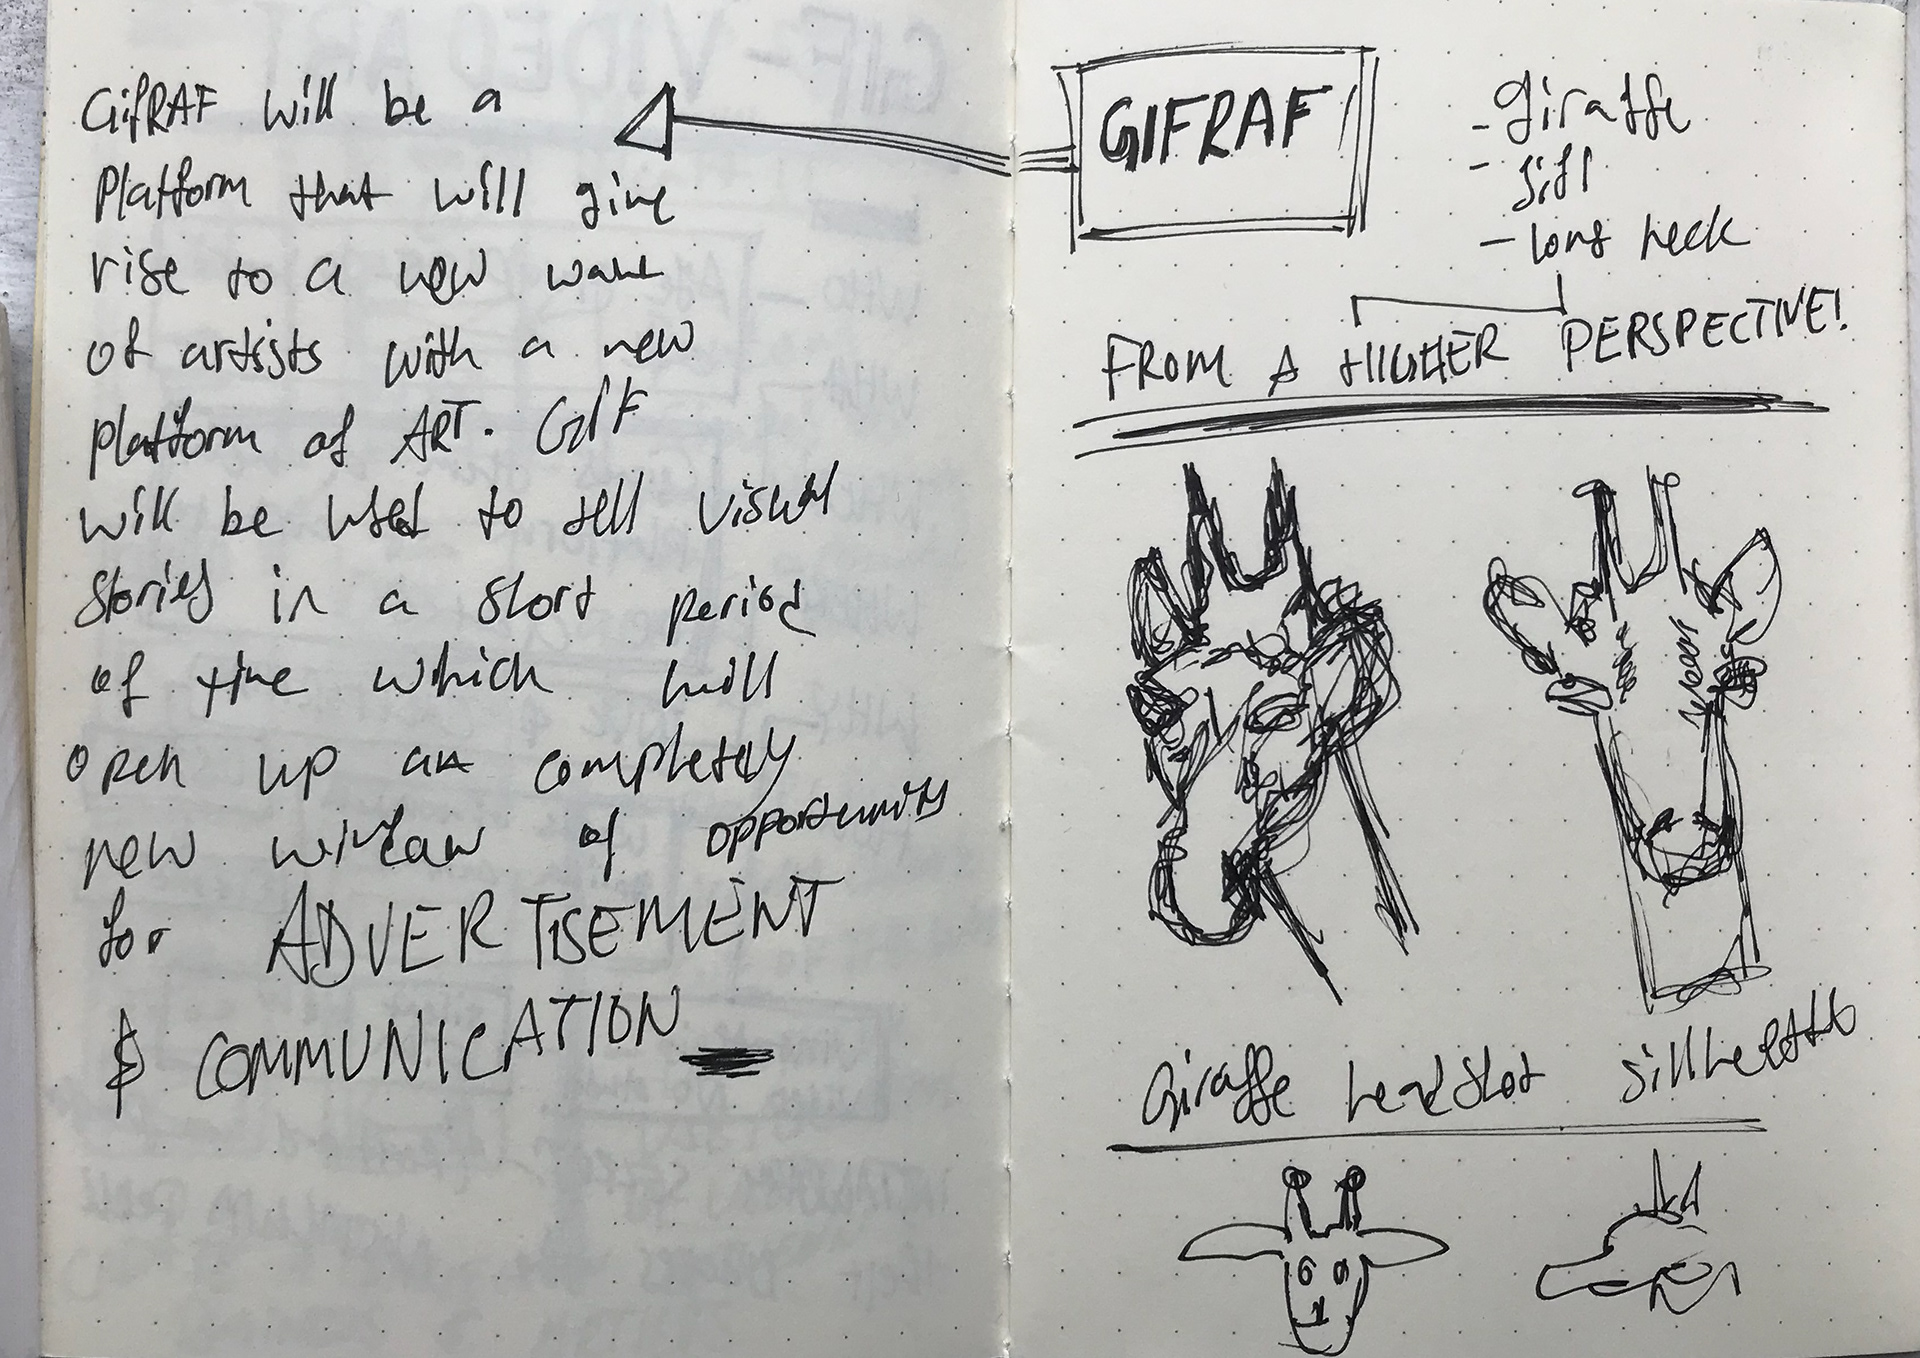 GifRAF will be a
Platform that will give
rise to a new wave
of artists with a new
platform of ART. GIF
will be used to tell visual
stories in a short period
of time which will
open up an completely
new window of opportunity
for ADVERTISEMENT
& COMMUNICATION
GIFRAF
- giraffe
-
- long neck
FROM A HIGHER PERSPECTIVE!
Giraffe headshot